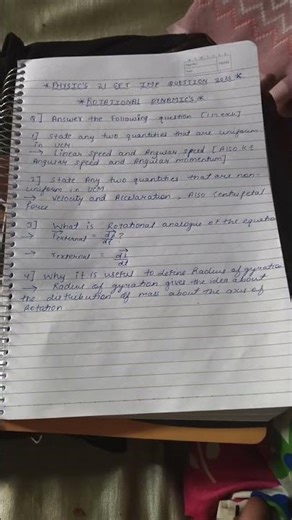 * PHYSIC'S 21 SET IMP QUESTION 2025 *
* ROTATIONAL DYNAMIC'S *
Q] Answer the following question (1 mark)
1] State any two quantities that are uniform
in UCM.
→ Linear speed and Angular speed [Also KE
Angular speed and Angular momentum]
2] State Any two quantities that are non-
uniform in UCM
→ Velocity and Acceleration, Also Centripetal
force
3] What is Rotational analogue of the equation
F⃗external = dp⃗/dt ?
→ τexternal = dL⃗/dt
4] Why it is useful to define Radius of gyration
→ Radius of gyration gives the idea about
the distribution of mass about the axis of
Rotation